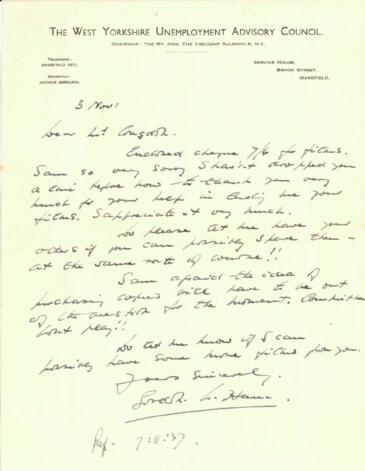 THE WEST YORKSHIRE UNEMPLOYMENT ADVISORY COUNCIL.
CHAIRMAN: THE RT. HON. THE VISCOUNT ALLENDALE, M.C.
TELEPHONE:
WAKEFIELD
SECRETARY:
ARTHUR
SERVICE HOUSE,
BROOK STREET,
WAKEFIELD.
3 Nov:
Dear
Enclosed cheque 7/6 for films.
I am so very sorry I hav'nt dropped you
a line before now to thank you very
much for your help in lending me your
films. I appreciate it very much.
Do please let me have your
others if you can possibly spare them –
at the same rate of course!!
I am afraid the idea of
purchasing copies will have to be out
of the question for the moment. Committee
wont play!!
Do let me know if I can
possibly have some more films from you.
Yours Sincerely,
7.11.37